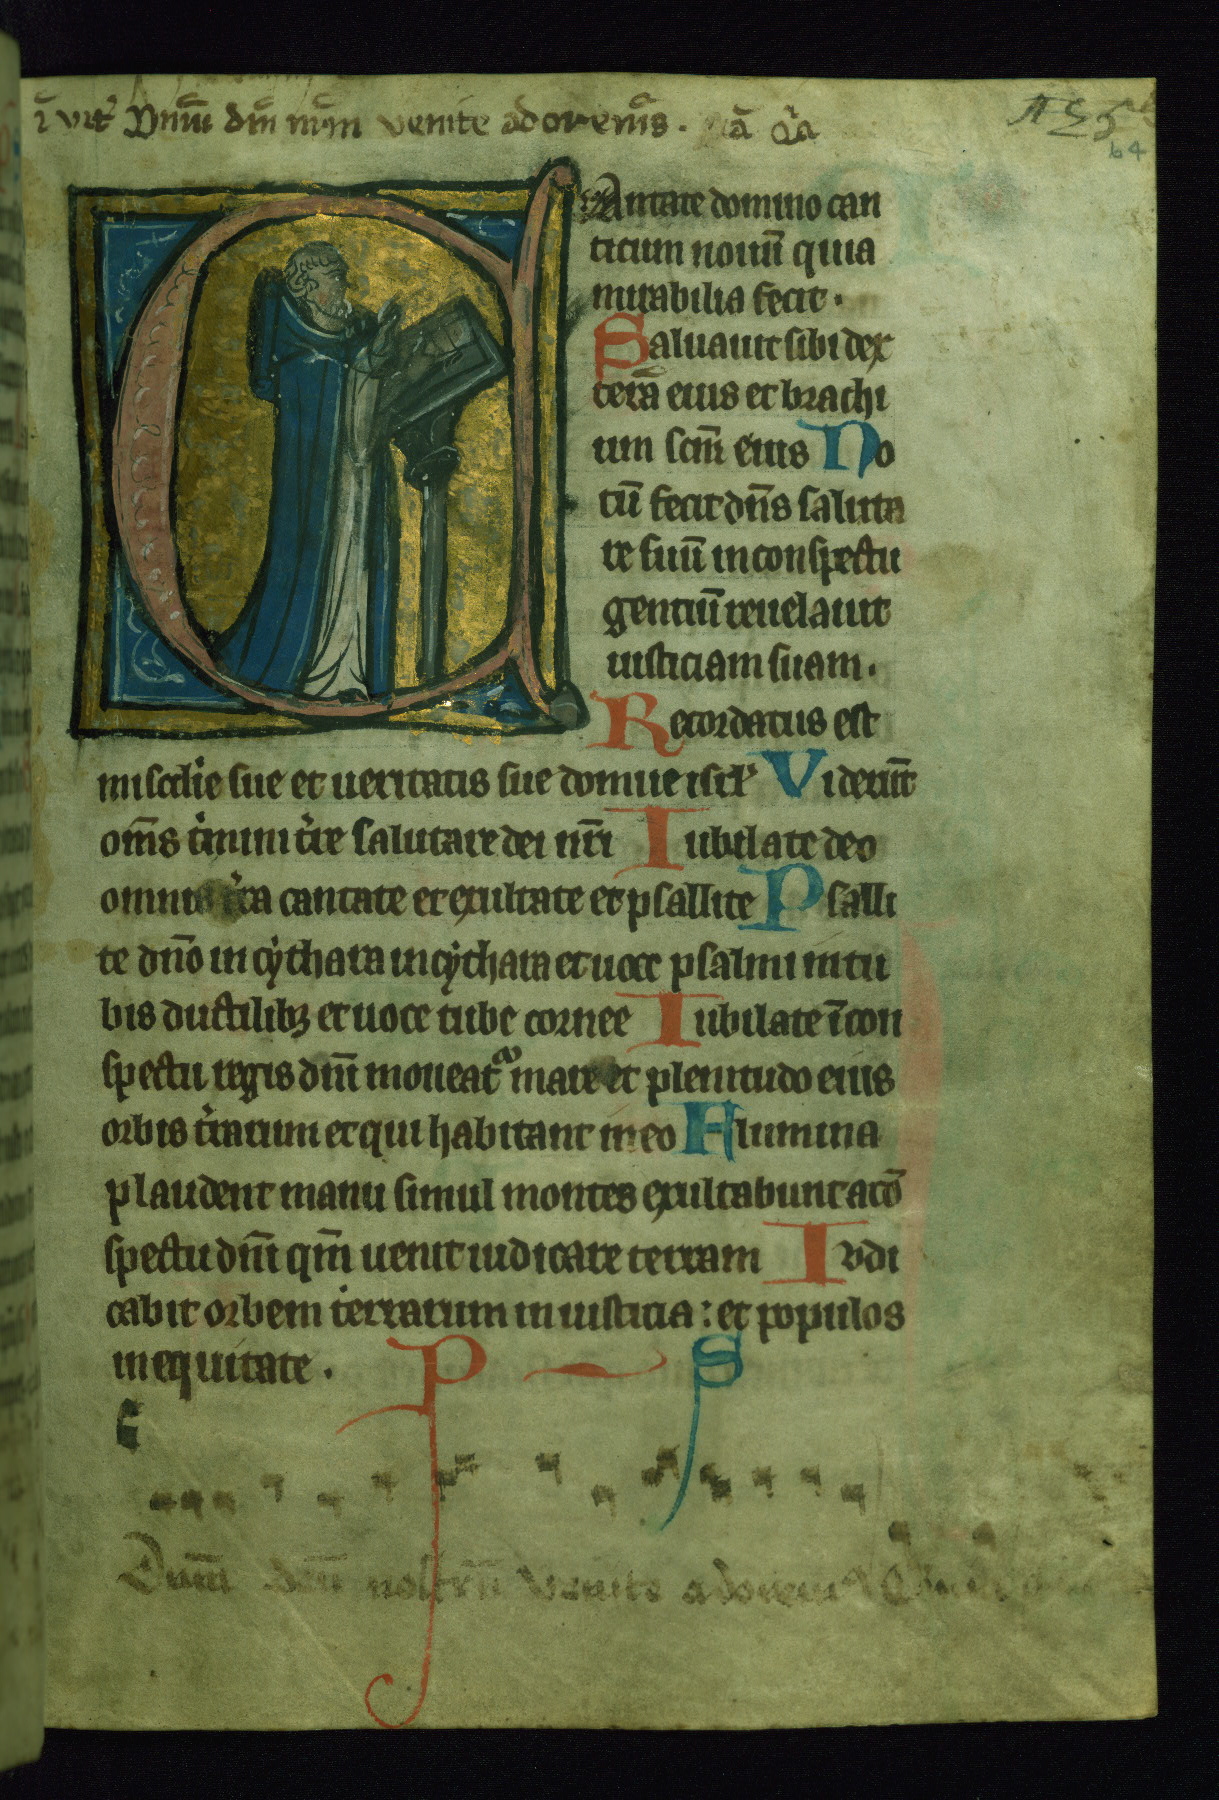 Dnm dm nrm venite adorem9.
64
CAntate domino can
ticum nouū quia
mirabilia fecit.
Saluauit sibi dex
terā eius et brachi
um scm̄ eius No
tū fecit dn̄s saluta
re suū in conspectu
gentiū reuelauit
iusticiam suam.
Recordatus est
miscdie sue et ueritatis sue domui isrl Viderūt
om̄s t'mini t're salutare dei nr̄i Iubilate deo
omnis t'ra cantate et exultate et psallite Psalli
te dn̄o in cythara in cythara et uoce psalmi in tu
bis ductilibꝫ et uoce tube cornee Iubilate ī con
spectu regis dn̄i moueat' mare et plenitudo eius
orbis t'rarum et qui habitant in eo Flumina
plaudent manu simul montes exultabunt a cō
spectu dn̄i qm̄ uenit iudicare terram Iudi
cabit orbem terrarum in iusticia: et populos
in equitate. P S
Dnm̄ nostrū Venite adorem